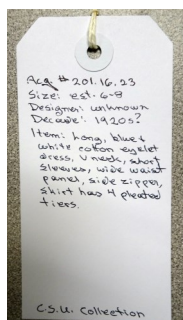 Acq # 201.16.23
Size: est. 6-8
Designer: unknown
Decade: 1920s?
Item: Long, blue &
white cotton eyelet
dress, V neck, short
sleeves, wide waist
panel, side zipper,
skirt has 4 pleated
tiers.
C.S.U. Collection